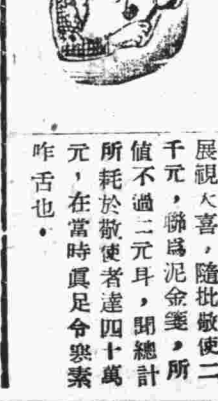 展視大喜，隨批敬使二
千元，聯爲泥金箋，所
値不過二元耳，聞總計
所耗於敬使者達四十萬
元，在當時眞足令寒素
咋舌也。